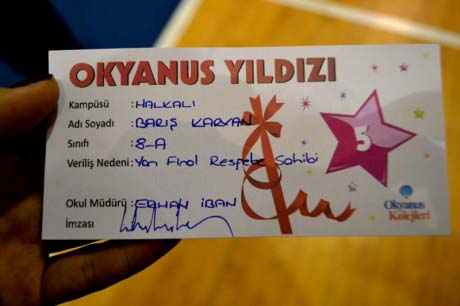 OKYANUS YILDIZI
Kampüsü :HALKALI
Adı Soyadı :BARIŞ KARVAN
Sınıfı :8-A
Veriliş Nedeni:Yarı Final Respebe Sahibi
5
Okul Müdürü :ERHAN İBAN
İmzası :
Okyanus
Kolejleri